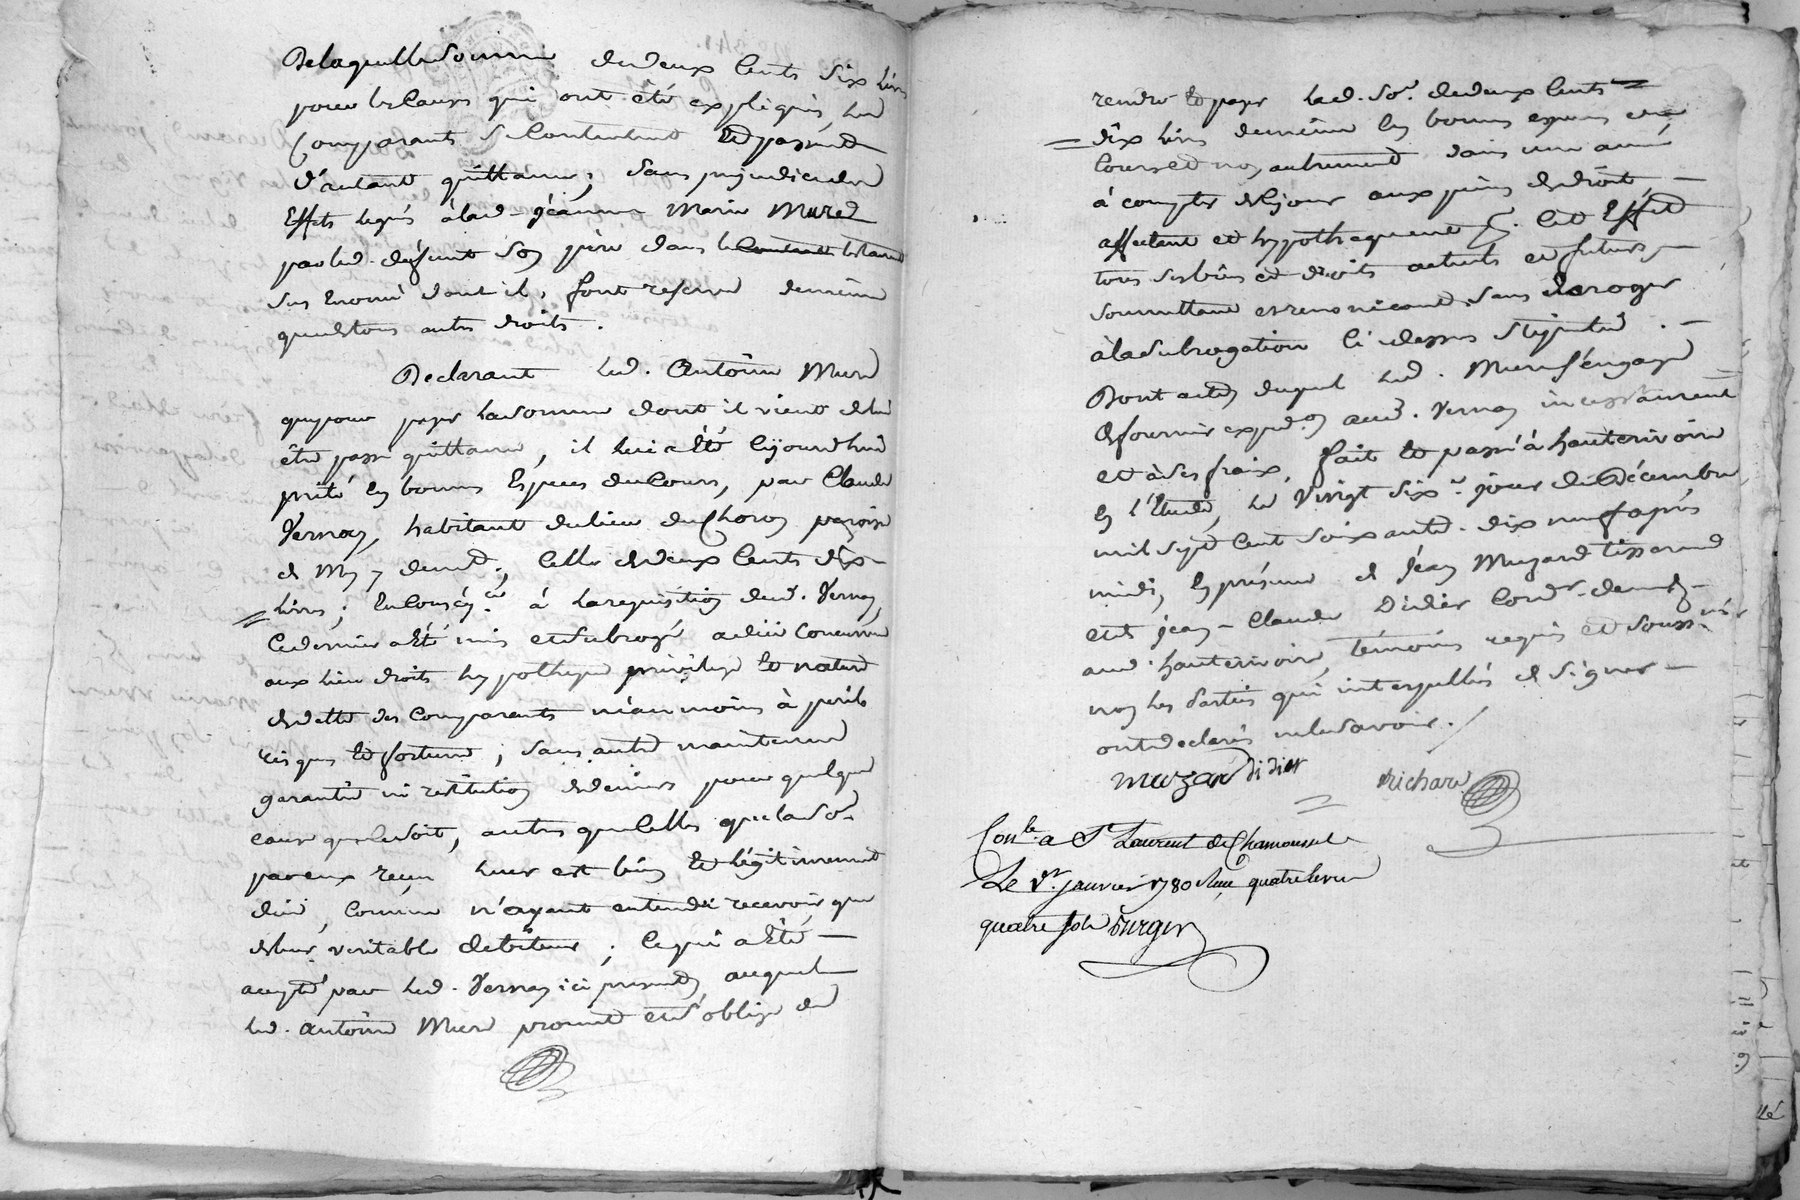 De laquelle somme de deux cents dix livres
pour les causes qui ont été expliqués, les
comparants se contentent et passent
d'autant quittance, sans préjudice des
effets légués à lad. Jeanne Marie Mure
par led. défunt son père dans le contrat
sus énoncé dont il, font réserve de même
que de tous autres droits.
Declarant led. Antoine Mure
que pour payer la somme dont il vient de lui
être passé quittance, il lui a été cejourdhui
prêté en bonnes espèces de cours, par Claude
Vernay, habitant du lieu du paroisse
de celle de deux cents dix
livres; à la requisition dud. Vernay,
ce dernier a été mis et subrogé a due concurrence
aux lieu droits hypotheque privilege et nature
de dette des comparants néanmoins à perils
risques et fortune; sans autre maintenue
garantie ni restitution de deniers pour quelque
cause que ce soit, autres que celles que lad. so.e
par eux reçue leur est bien et légitimement
due, comme n'ayant entendu recevoir que
de leur veritable debiteur; ce qui a été
accepté par led. Vernay ici présent, auquel
led. Antoine Mure promet et s'oblige de
rendre et payer lad. so.e de deux cents
dix livres de même en bonnes espèces de
cours et non autrement dans une année
à compter de ce jour aux peines de droit,
affectant et hypothequant à cet effet
tous ses biens et droits actuels et futurs,
soumettant et renonçant, sans deroger
à la subrogation ci dessus stipulée.
Dont acte, duquel led. Mure s'engage
de fournir exped.on aud. Vernay incessamment
et à ses fraix, fait et passé à hauterivoire
en l'Etude, le vingt six.e jour de Décembre
mil sept cent soixante-dix neuf après
midi, en présence de Jean Muzard tisserand
et de Jean-Claude Didier cord.r
aud. hauterivoire, témoins requis et soussignés
non les parties qui interpellés de signer
ont declarés ne le savoir./
muzard didier Richard
Con.lé a St Laurent de Chamousset
Le 1.er janvier 1780 Reçu quatre livres
quatre sols Durger